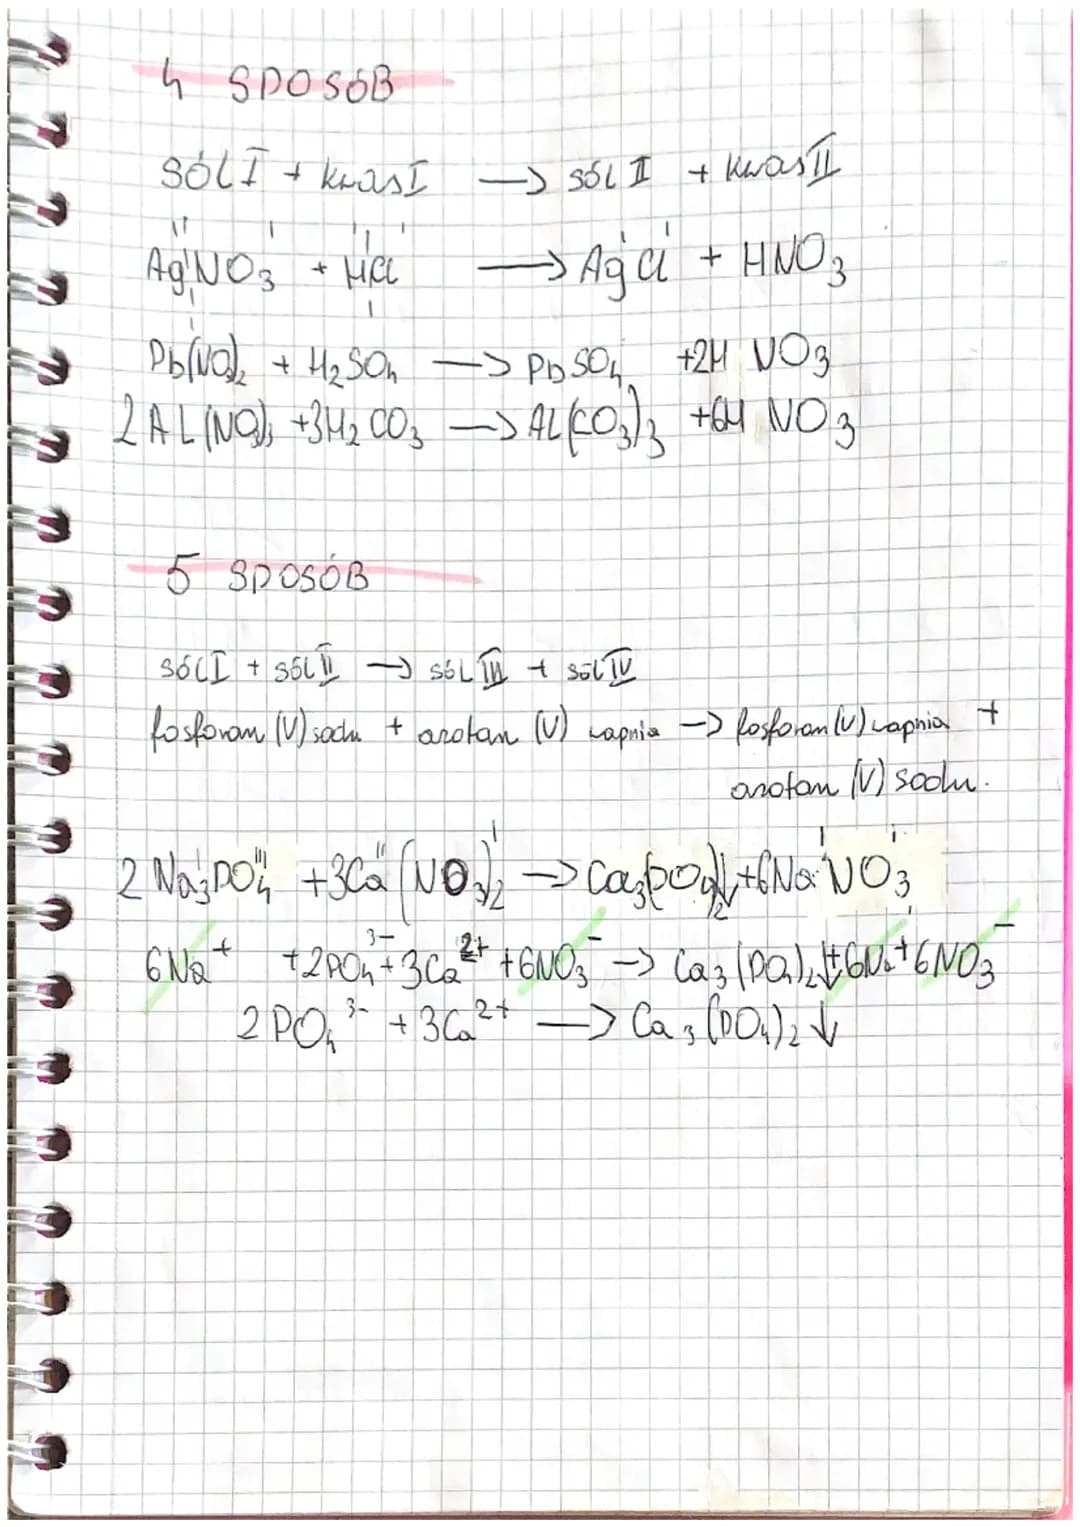 4 SPOSÓB
SÓL I + kwas I → SÓL II + kwas II
AgNO₃ + HCl → AgCl + HNO₃
Pb(NO₃)₂ + H₂SO₄ → PbSO₄ + 2HNO₃
2Al(NO₃)₃ + 3H₂CO₃ → Al(CO₃)₃ + 6HNO₃
5 SPOSÓB
SÓL I + SÓL II → SÓL III + SÓL IV
fosforan (V) sodu + azotan (V) wapnia → fosforan (V) wapnia +
azotan (V) sodu.
2Na₃PO₄ + 3Ca(NO₃)₂ → Ca₃(PO₄)₂↓ + 6NaNO₃
6Na⁺ + 2PO₄³⁻ + 3Ca²⁺ + 6NO₃⁻ → Ca₃(PO₄)₂↓ + 6Na⁺ + 6NO₃⁻
2PO₄³⁻ + 3Ca²⁺ → Ca₃(PO₄)₂↓